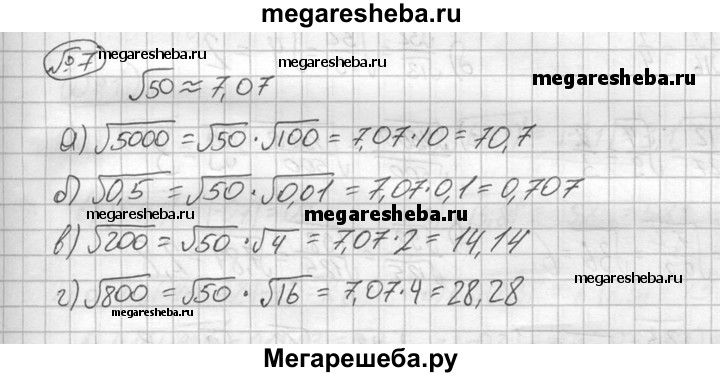 megaresheba.ru
№7 megaresheba.ru megaresheba.ru
√50 ≈ 7,07 megaresheba.ru
а) √5000 = √50 · √100 = 7,07·10 = 70,7
б) √0,5 = √50 · √0,01 = 7,07·0,1 = 0,707
megaresheba.ru megaresheba.ru
в) √200 = √50 · √4 = 7,07·2 = 14,14
megaresheba.ru
г) √800 = √50 · √16 = 7,07·4 = 28,28
megaresheba.ru
Мегарешеба.ру